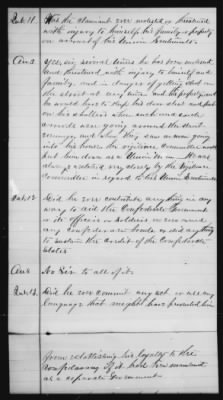 Qst. 11. Has the claimant ever molested or threatened
with injury to himself his family or property
on account of his Union Sentiments.
Yes, sir, several times he has been molested
and threatened with injury to himself and
family, and in danger of getting shot in
the street at any time and his property and
he would have to keep his door shut and put
on his shutters when such and such
crowds were going around the street
evenings, and when they saw a man going
into his house the vigilance committee would
put him down as a Union man. He was
always watched very closely by the Vigilance
Committee in regard to his Union Sentiments
Qst. 12 Did he ever contribute anything in any
way to aid the Confederate Government
or its officers or soldiers or ever send
any Confederate bonds or did anything
to sustain the credit of the Confederate
States
Ans No Sir to all of it.
Qst. 13. Did he ever commit any act or use any
language that might have prevented him
from establishing his loyalty to the
Confederacy if it had been maintained
as a separate Government